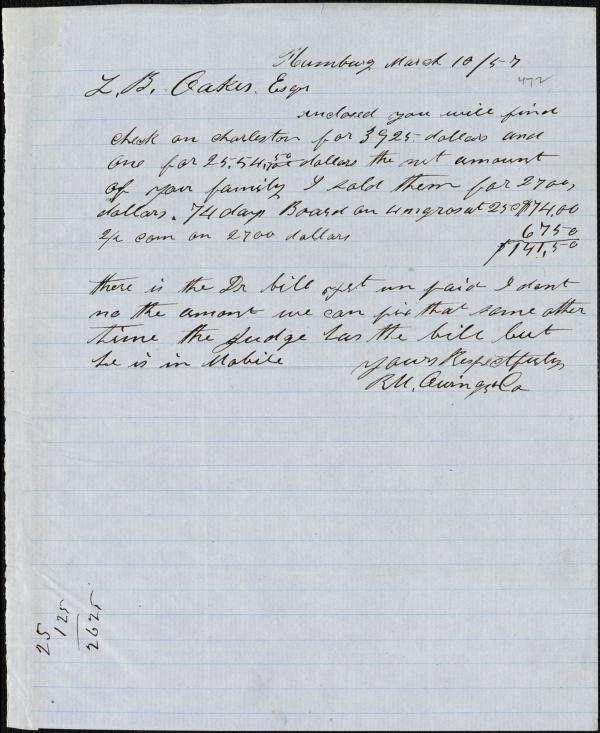 Hamburg March 10/57
472
Z. B. Oakes. Esqr
enclosed you will find
check on charleston for 3925. dollars and
one for 25,54, 50/100 dollars the net amount
of your family I sold them for 2700,
dollars. 74 days Board on 4 negros at 25c $74,00
2½ com on 2700 dollars 6750
$141,50
there is the Dr bill yet un paid I dont
no the amont we can fix that some other
time the Judge has the bill but
he is in Mobile
Yours Respectfuly
R M. Owings & Co
25
125
2625